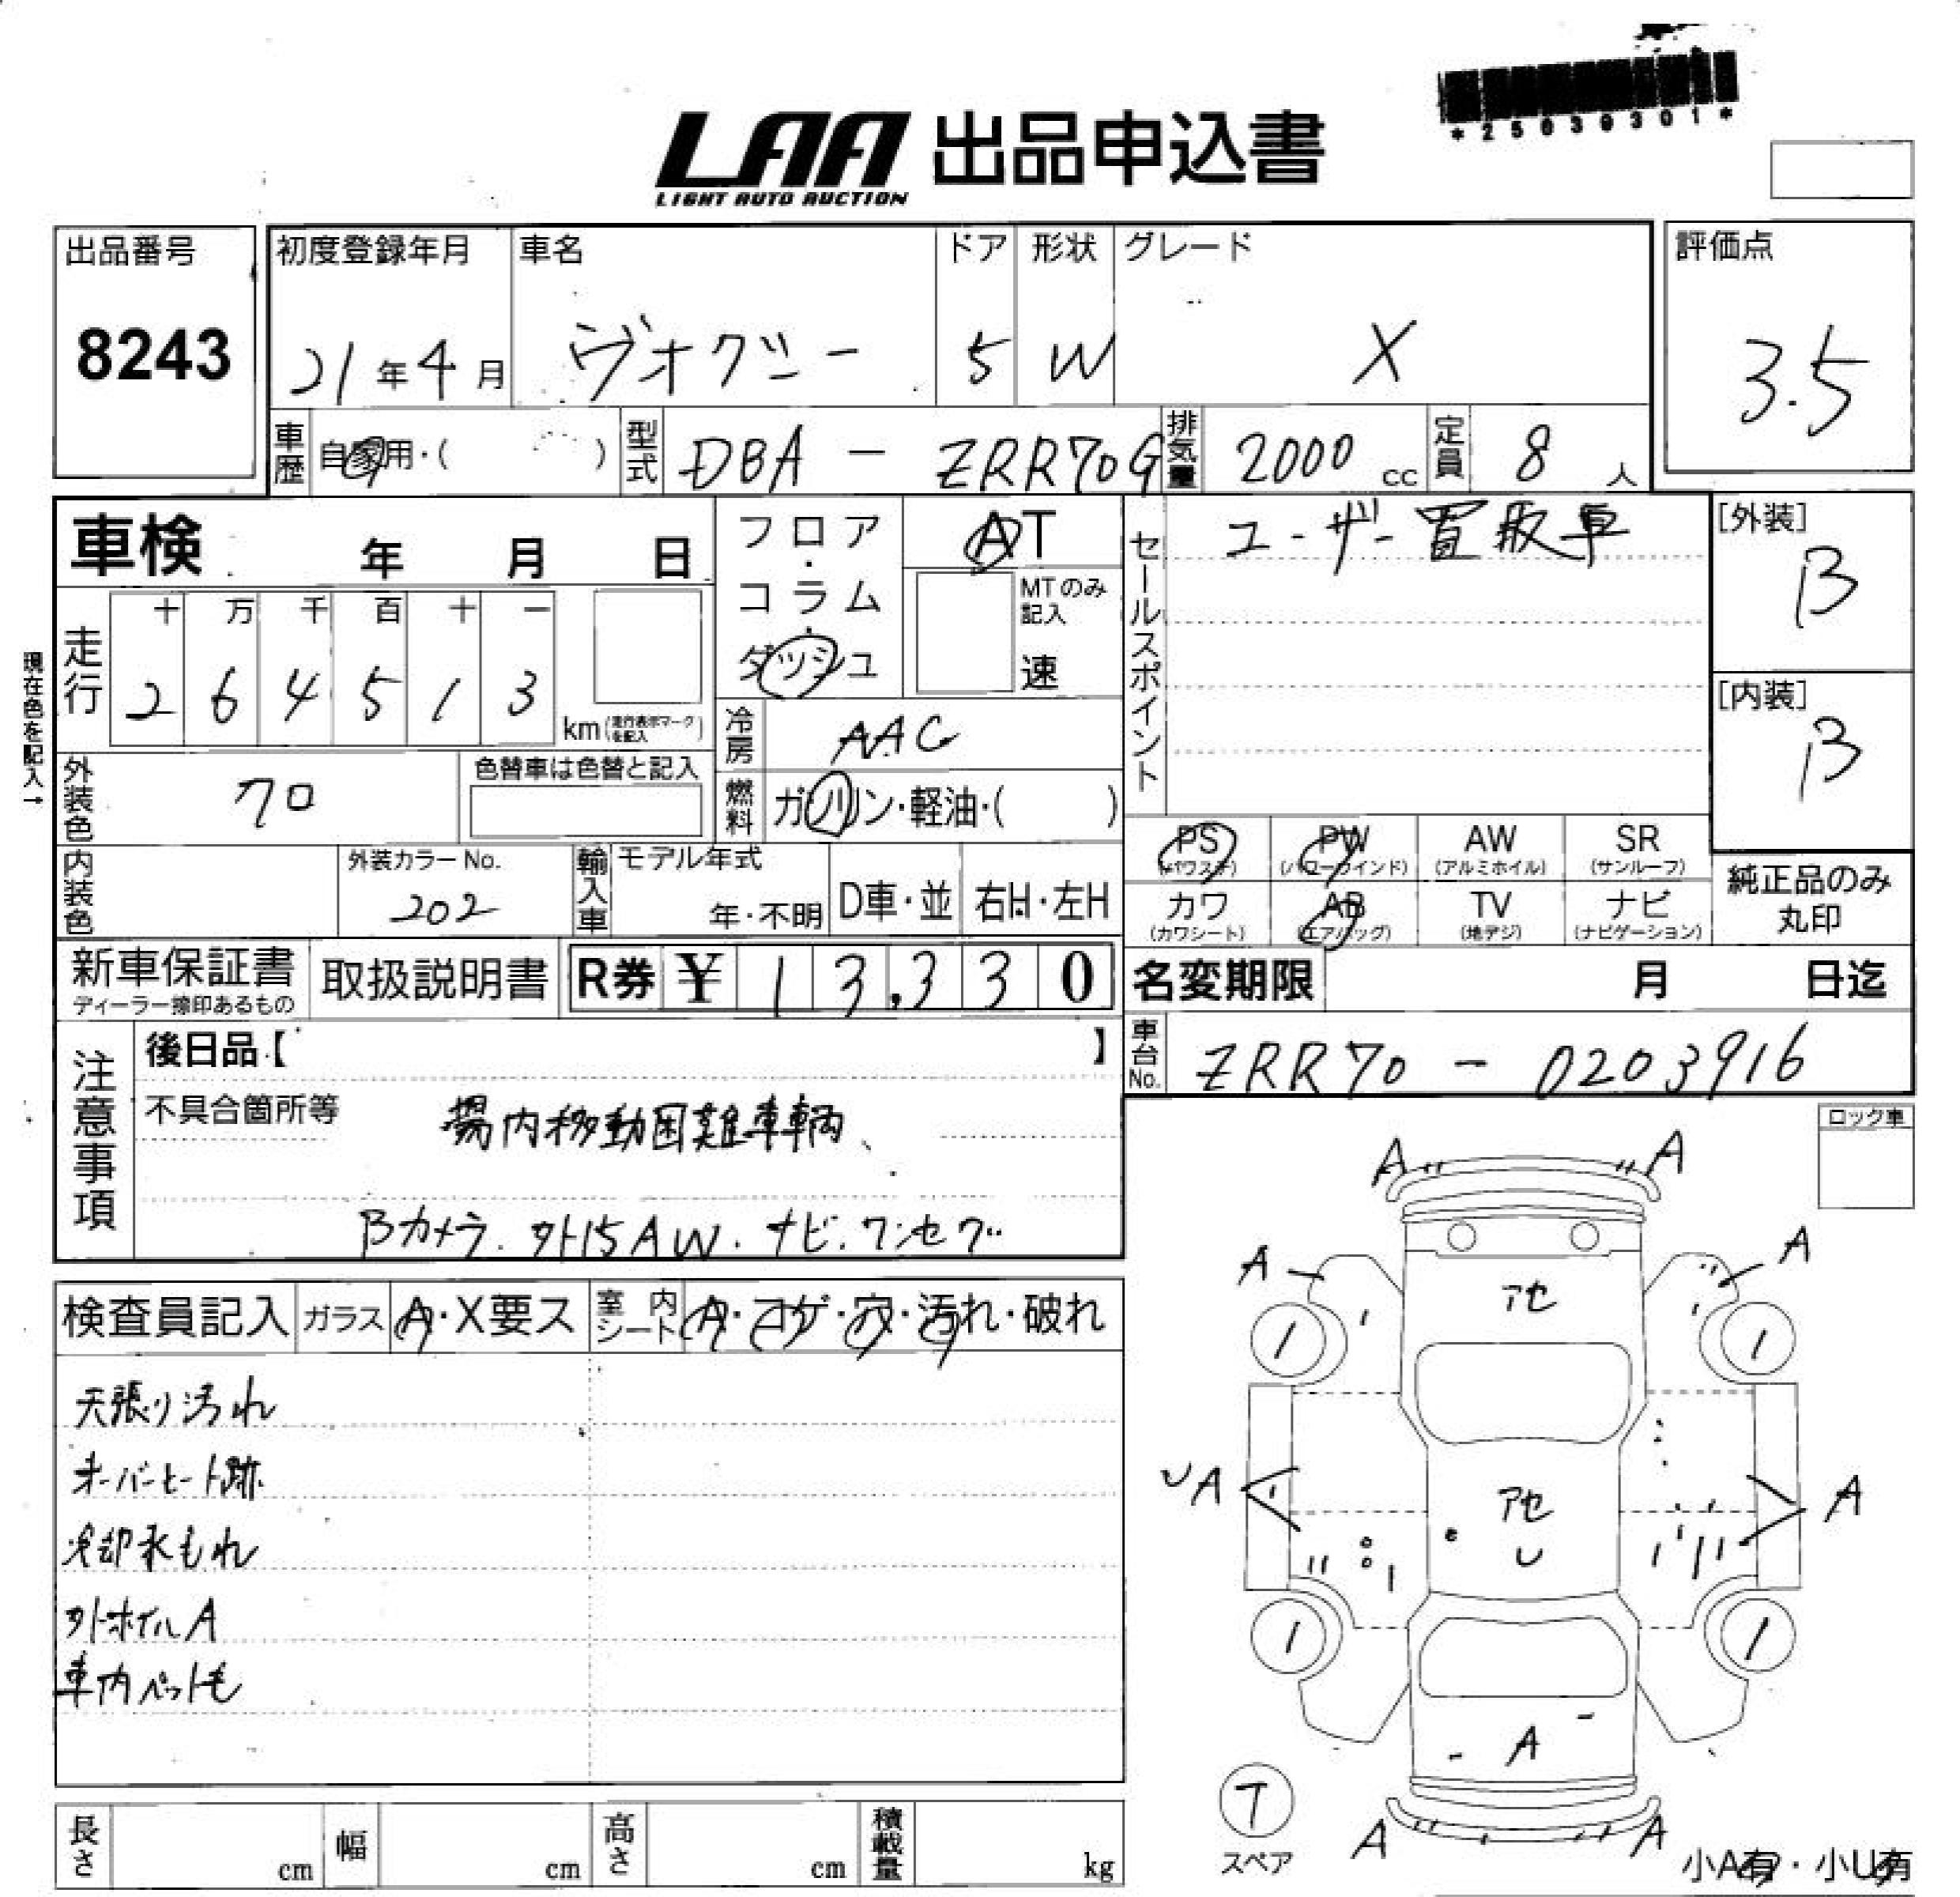 *25030301*
LAA 出品申込書
LIGHT AUTO AUCTION
出品番号 初度登録年月 車名 ドア 形状 グレード 評価点
8243 21年4月 ヴォクシー 5 W X 3.5
車歴 自家用・( ) 型式 DBA - ZRR70G 排気量 2000 cc 定員 8 人
車検 年 月 日
フロア・コラム・ダッシュ
AT
MTのみ記入
速
セールスポイント ユーザー買取車
[外装]
B
[内装]
B
現在色を記入→
走行 十 万 千 百 十 一
2 6 4 5 1 3
km (走行表示マークを記入)
冷房 AAC
外装色 クロ 色替車は色替と記入
燃料 ガソリン・軽油・( )
PS PW AW SR
(パワステ) (パワーウインド) (アルミホイル) (サンルーフ)
カワ AB TV ナビ
(カワシート) (エアバッグ) (地デジ) (ナビゲーション)
純正品のみ
丸印
内装色 外装カラーNo. 202 輸入車 モデル年式 年・不明 D車・並 右H・左H
新車保証書 取扱説明書 R券 ¥ 1 3,3 3 0
ディーラー捺印あるもの
名変期限 月 日迄
車台No. ZRR70 - 0203916
注意事項
後日品【 】
不具合箇所等 場内移動困難車輌、
Bカメラ. 外15AW. ナビ. ワンセグ
ロック車
検査員記入 ガラス A・X要ス 室内シート A・コゲ・穴・汚れ・破れ
天張り汚れ
オーバーヒート跡
冷却水もれ
外ホイルA
車内ペット毛
A A
A A
アセ
1 1
UA アセ A
U
1 1
A
T
スペア
A A
小A有・小U有
長さ cm 幅 cm 高さ cm 積載量 kg